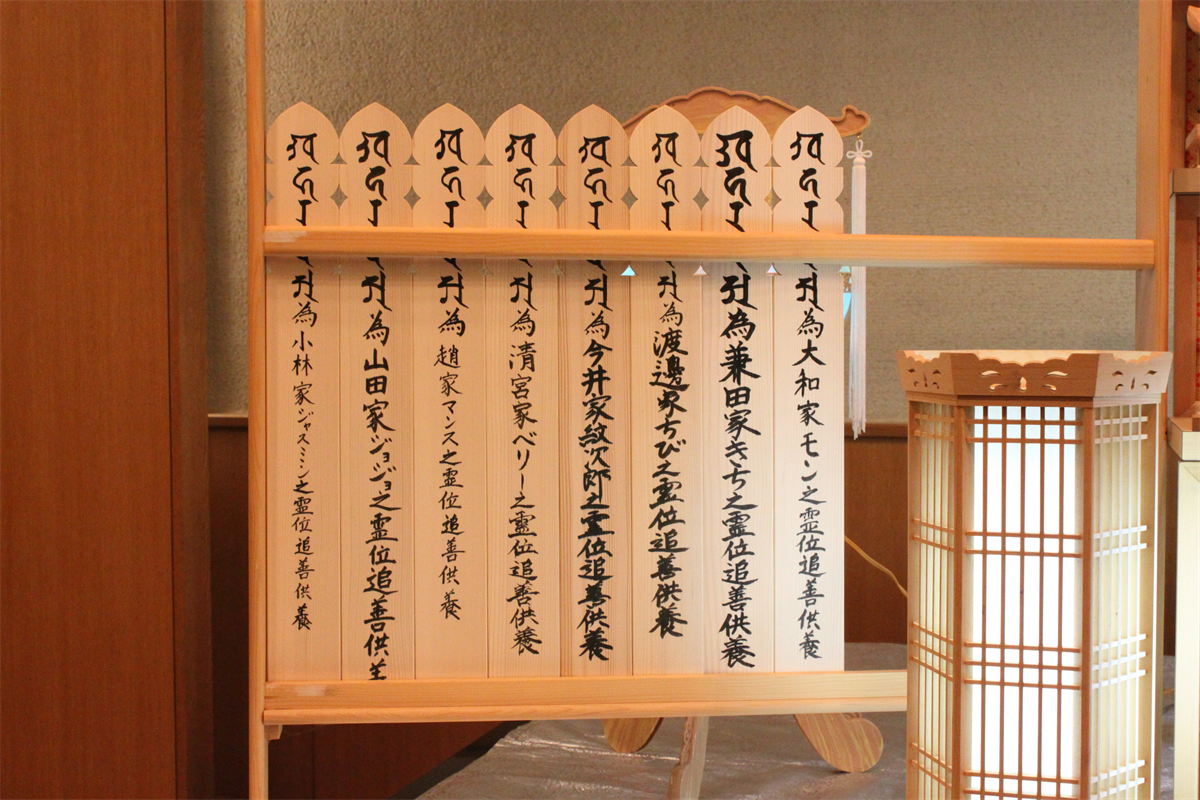 為大和家モン之霊位追善供養
為兼田家きち之霊位追善供養
為渡邊家ちび之霊位追善供養
為今井家紋次郎之霊位追善供養
為清宮家ベリー之霊位追善供養
為趙家マンス之霊位追善供養
為山田家ジョジョ之霊位追善供
為小林家ジャスミン之霊位追善供養